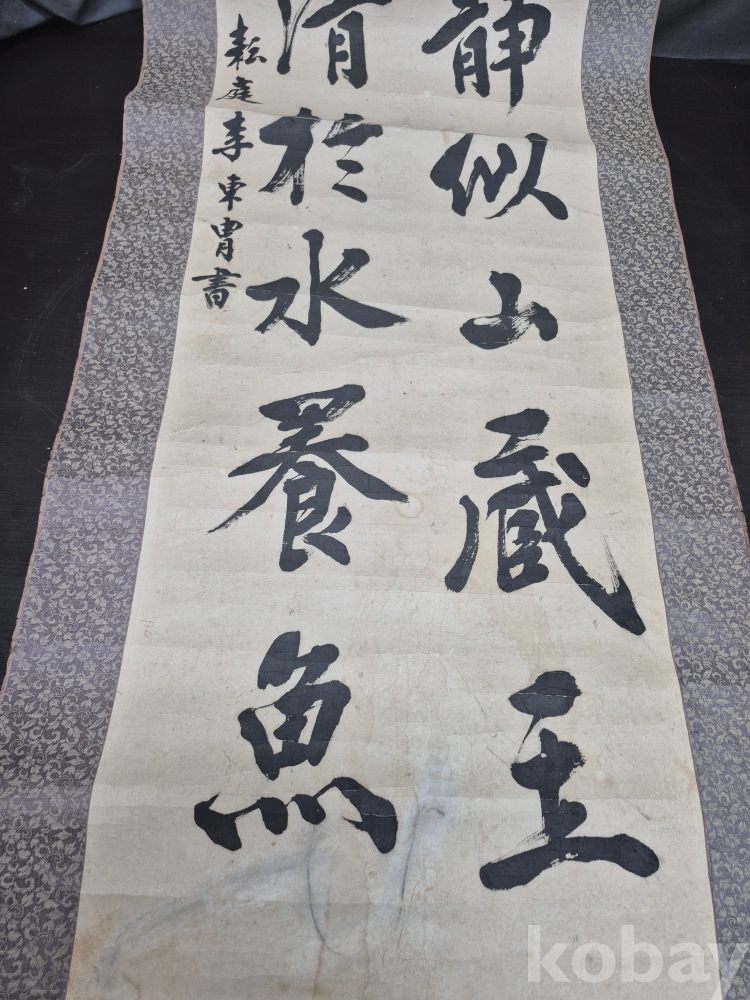 靜似山藏玉
清於水養魚
耘庭李東胄書
kobay